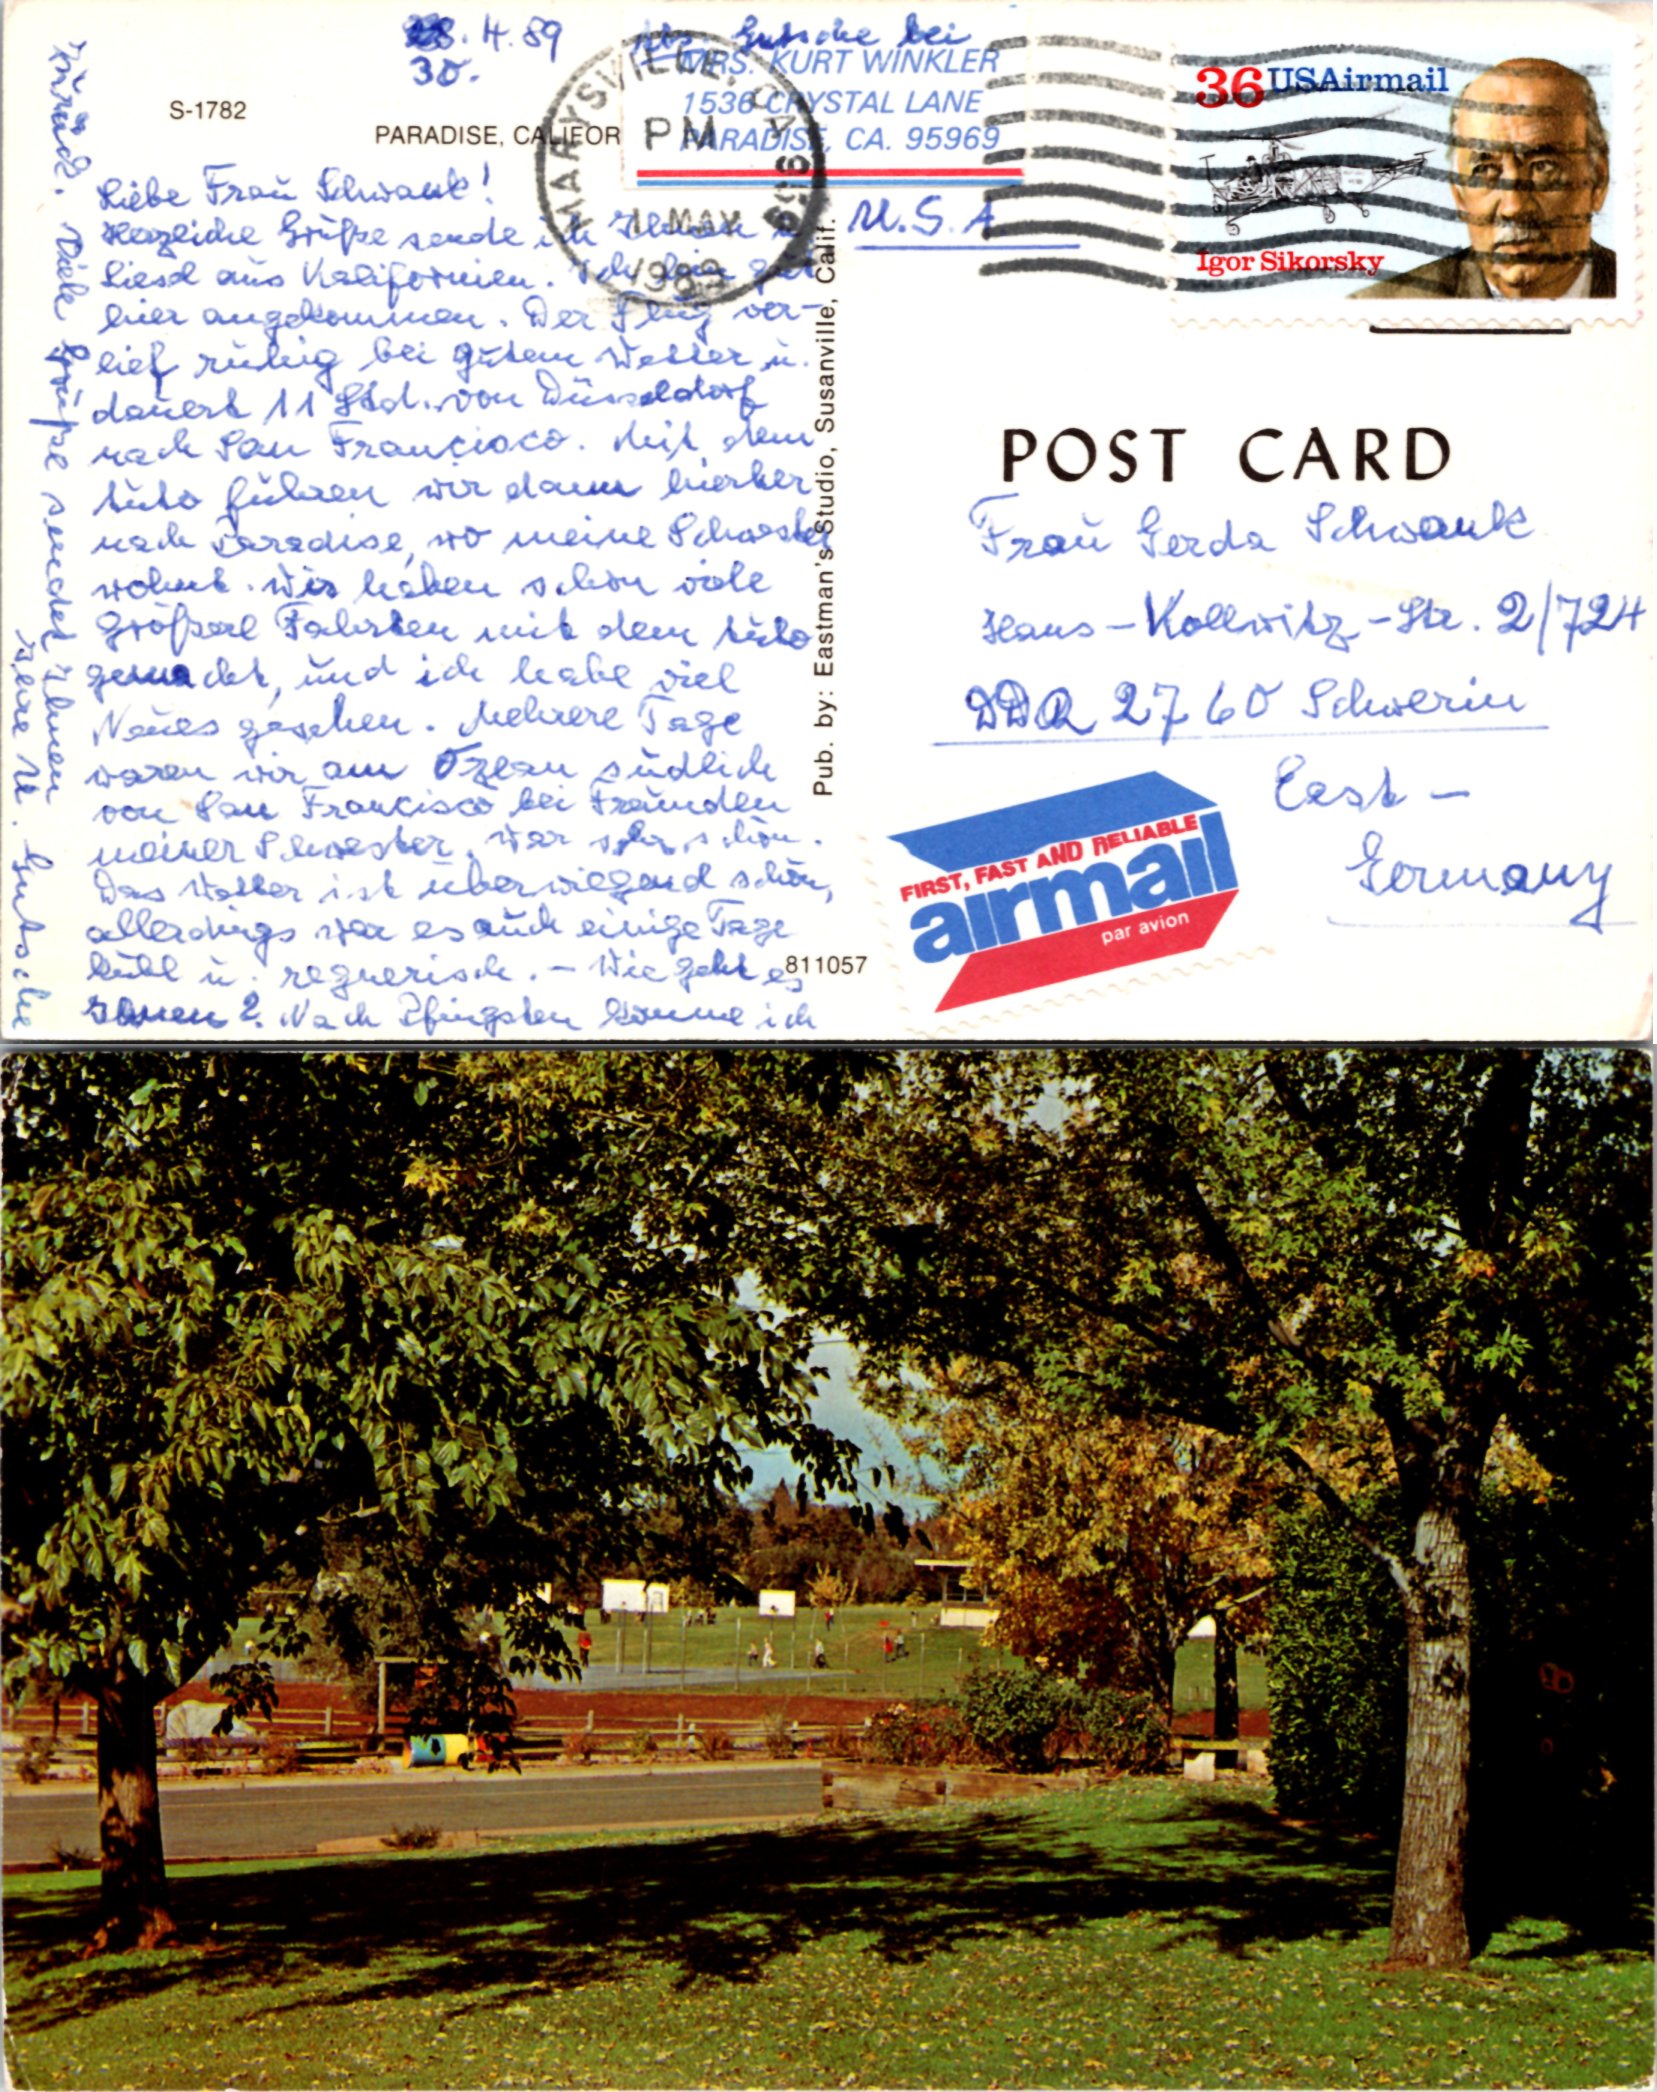 28. 4. 89
30.
Abs. Gutsche bei
MRS. KURT WINKLER
1536 CRYSTAL LANE
PARADISE, CA. 95969
U.S.A
S-1782
PARADISE, CALIFOR
MARYSVILLE, CA
PM
1 MAY
1989
959
36 USAirmail
Igor Sikorsky
Liebe Frau Schwank!
Herzliche Grüße sende ich Ihnen u.
Liesel aus Kalifornien. Ich bin gut
hier angekommen. Der Flug ver-
lief ruhig bei gutem Wetter u.
dauert 11 Std. von Düsseldorf
nach San Francisco. Mit dem
Auto fuhren wir dann hierher
nach Paradise, wo meine Schwester
wohnt. Wir haben schon viele
größere Fahrten mit dem Auto
gemacht, und ich habe viel
Neues gesehen. Mehrere Tage
waren wir am Ozean südlich
von San Francisco bei Freunden
meiner Schwester. War sehr schön.
Das Wetter ist überwiegend schön,
allerdings war es auch einige Tage
kühl u. regnerisch. – Wie geht es
Ihnen? Nach Pfingsten komme ich
zurück. Viele Grüße sendet Ihnen
Ihre H. Gutsche
Pub. by: Eastman's Studio, Susanville, Calif.
811057
POST CARD
Frau Gerda Schwank
Hans-Kollwitz-Str. 2/724
DDR 2760 Schwerin
East –
Germany
FIRST, FAST AND RELIABLE
airmail
par avion